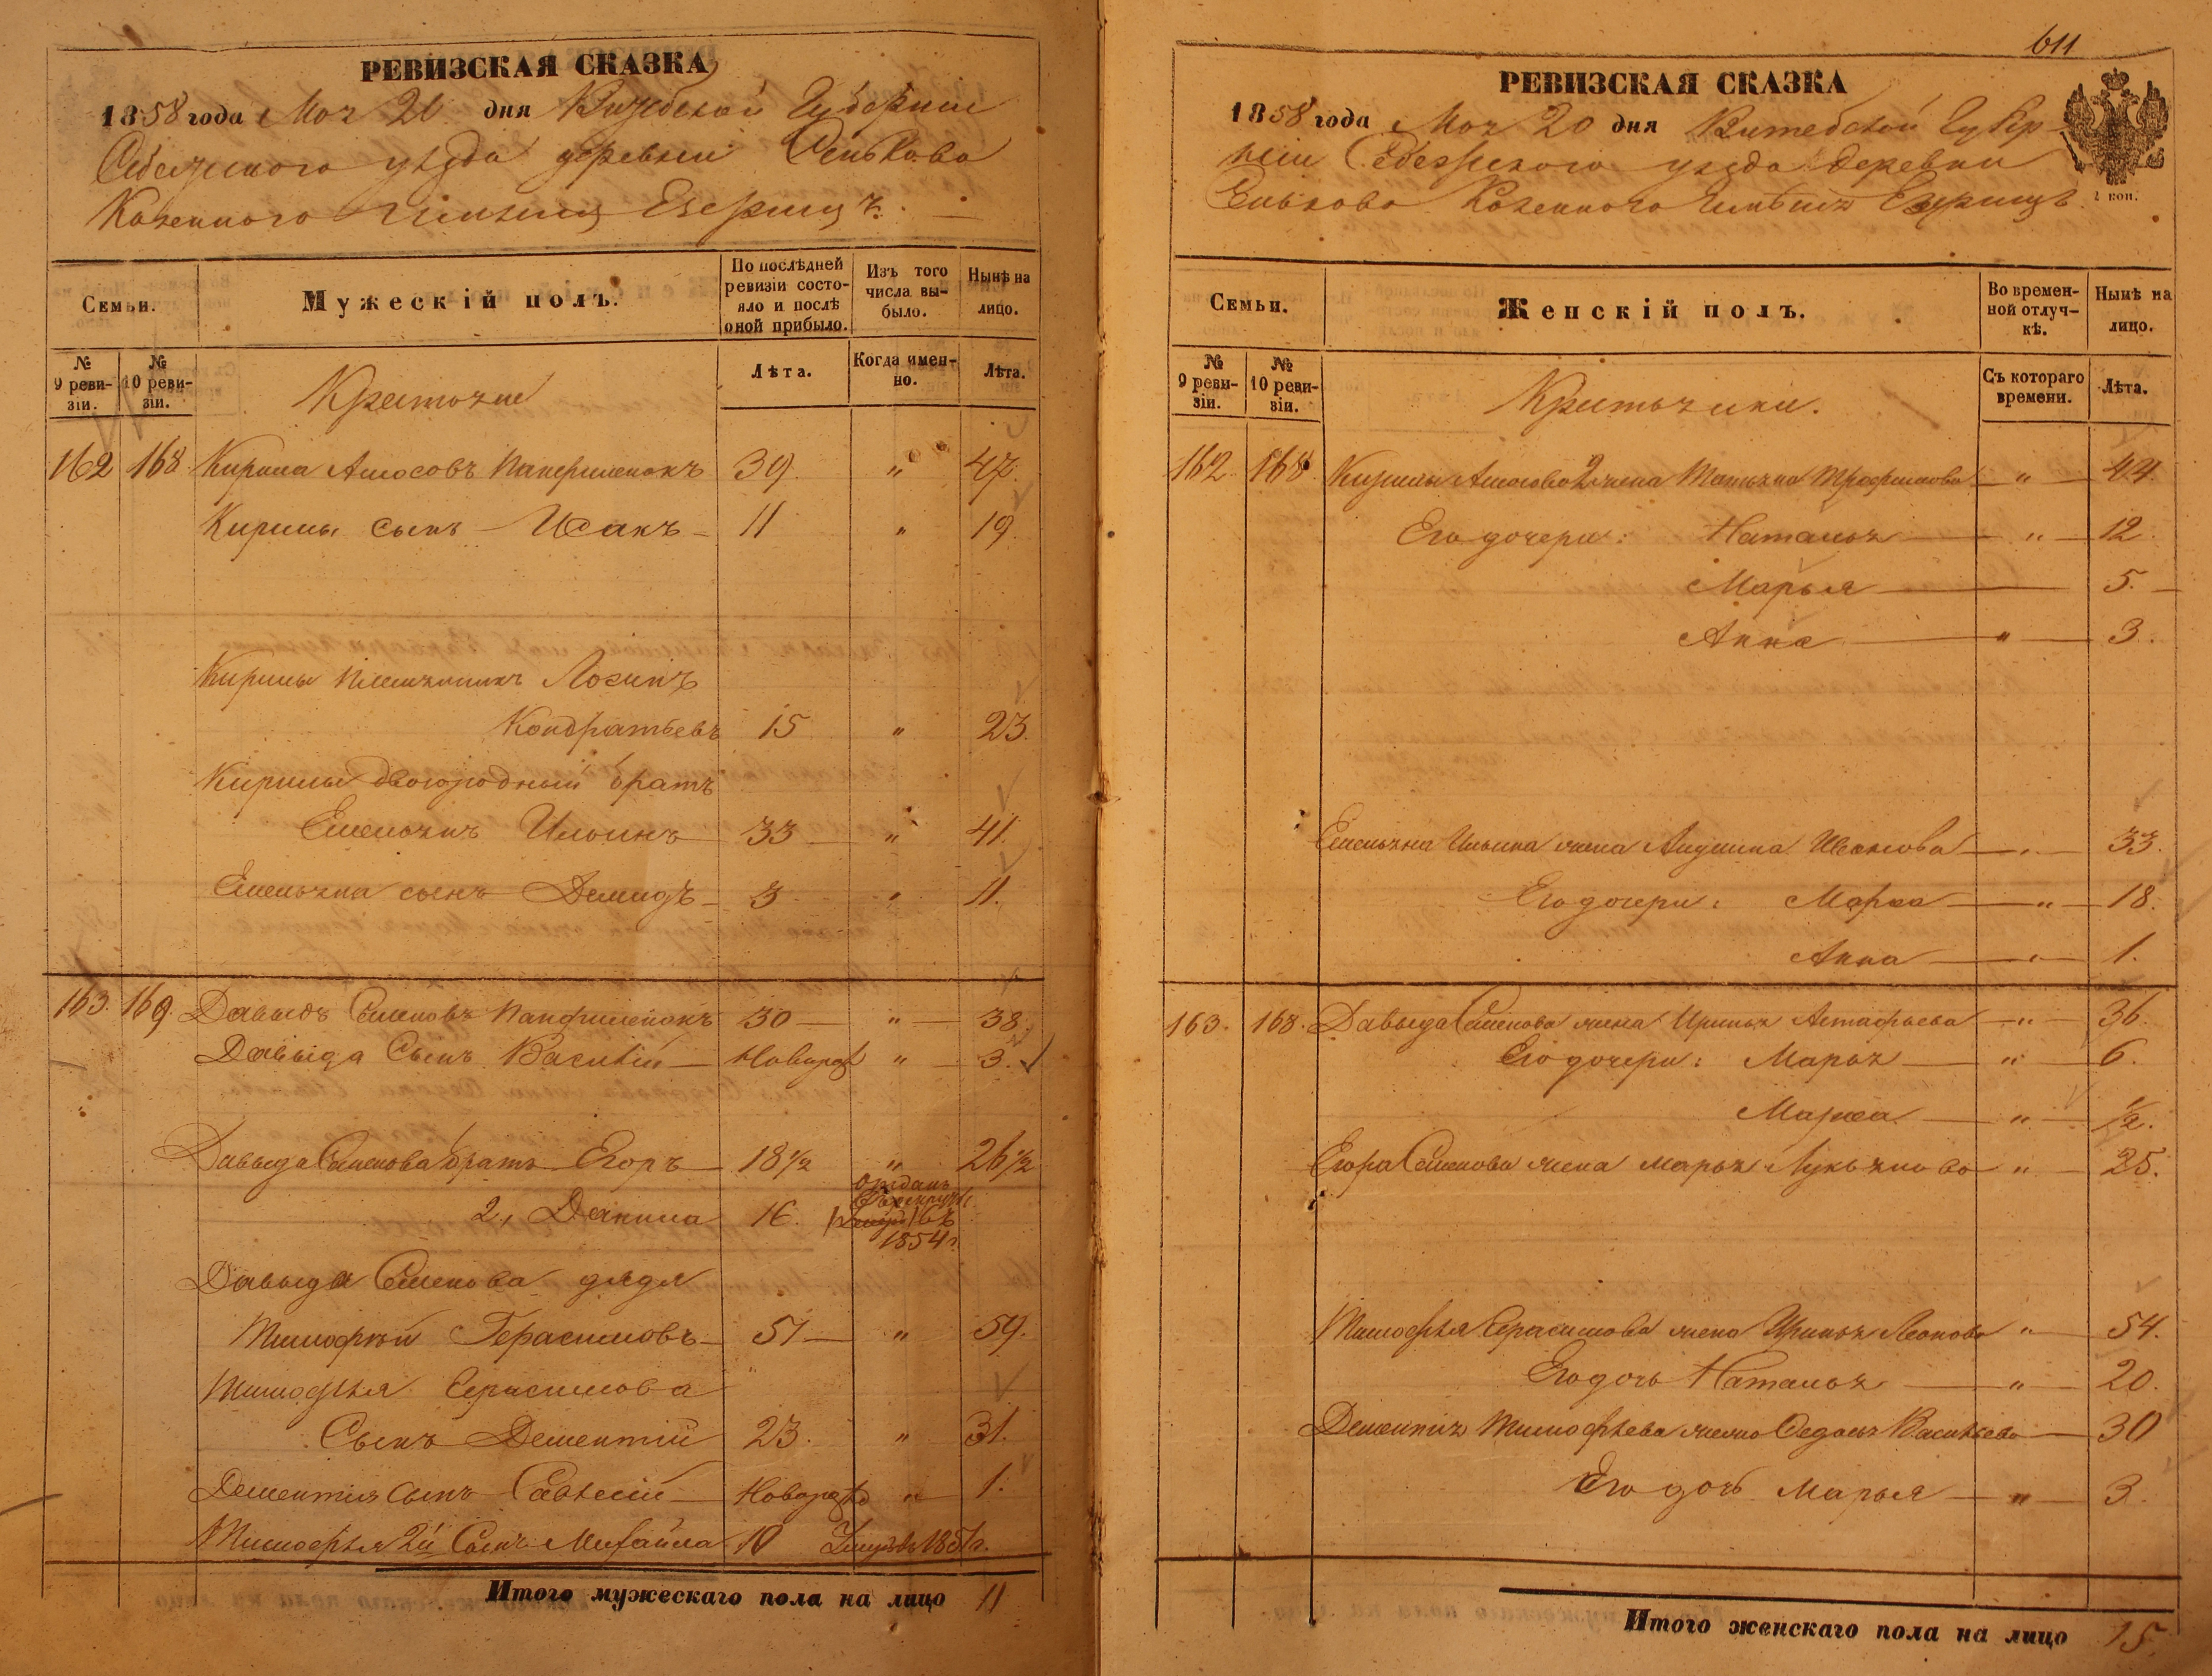 РЕВИЗСКАЯ СКАЗКА
1858 года Мая 20 дня Витебской Губернии
Себежского уѣзда деревни Сеньково
Казеннаго Имѣнія Езерищъ.
Семьи.
Мужескій полъ.
По послѣдней ревизіи состояло и послѣ оной прибыло.
Изъ того числа выбыло.
Нынѣ на лицо.
№ 9 ревизіи.
№ 10 ревизіи.
Лѣта.
Когда именно.
Лѣта.
162 168 Кирила Амосовъ 39. " 47.
Кирилы сынъ Исакъ 11 " 19.
Кирилы племянникъ Логинъ
Кондратьевъ 15 " 23.
Кирилы двоюродный братъ
Емельянъ Ильинъ 33 " 41.
Емельяна сынъ Демидъ 3 " 11.
163. 169. Давыдъ Семеновъ 30 " 38.
Давыда Сынъ Василій Новорож " 3.
Давыда Семенова братъ Егоръ 18 1/2 " 26 1/2
2, Данила 16. отданъ въ рекруты въ 1854 г.
Давыда Семенова дядя
Тимофѣй Герасимовъ 51 " 59.
Тимофѣя Герасимова
Сынъ Дементій 23. " 31.
Дементія Сынъ Новорож " 1.
Тимофѣя 2й Сынъ Михайла 10 Умеръ въ 1851 г.
Итого мужескаго пола на лицо 11
611
РЕВИЗСКАЯ СКАЗКА
1858 года Мая 20 дня Витебской Губер-
ніи Себежского уѣзда деревни
Сеньково Казеннаго Имѣнія Езерищъ.
2 коп.
Семьи.
Женскій полъ.
Во временной отлучкѣ.
Нынѣ на лицо.
№ 9 ревизіи.
№ 10 ревизіи.
Съ котораго времени.
Лѣта.
162. 168. Кирилы Амосова 2 жена Татьяна Трофимова " 44.
Его дочери: Наталья " 12.
Марья 5.
Анна " 3.
Емельяна Ильина жена Акулина 33.
Его дочери: Марфа " 18.
Анна 1.
163. 168. Давыда Семенова жена Ирина Астафьева " 36.
Его дочери: Марья " 6.
Марфа " 1/2.
Егора Семенова жена Марья Лукьянова " 25.
Тимофѣя Герасимова жена Ирина Леонова " 54.
Его дочь Наталья " 20.
Дементія Тимофѣева жена Федосья Васильева 30
Его дочь Марья " 3.
Итого женскаго пола на лицо 15.